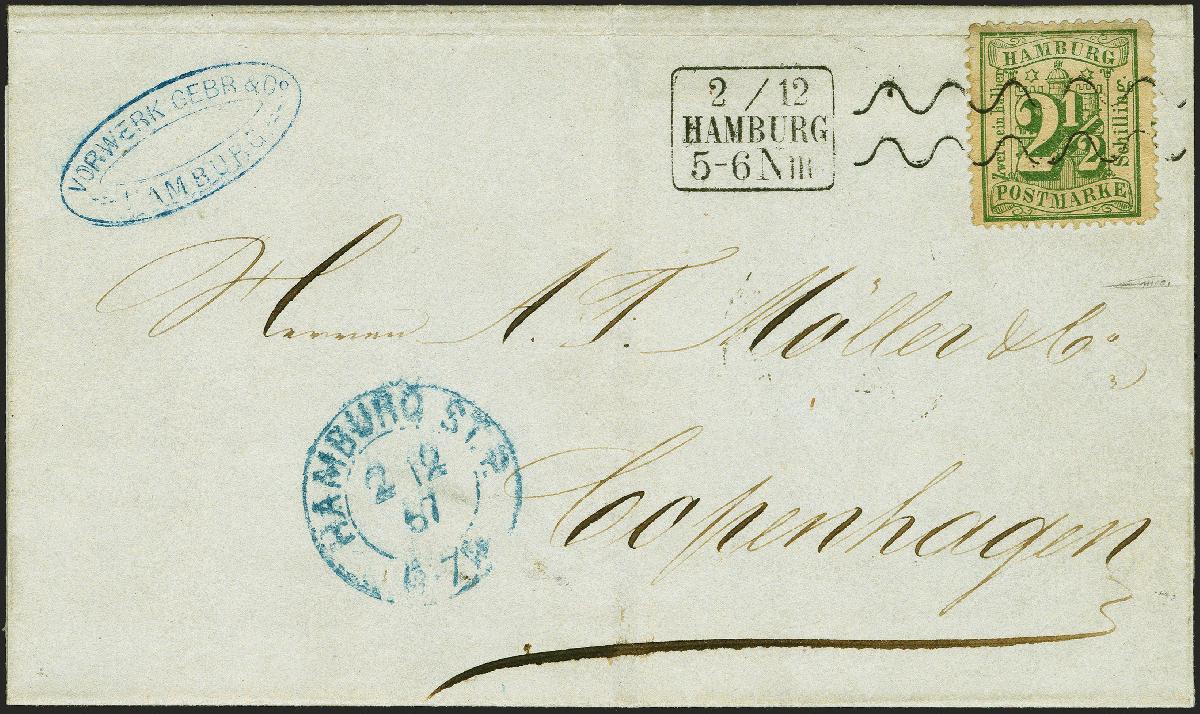 VORWERK GEBR & Co
HAMBURG
2 / 12
HAMBURG
5-6 Nm
HAMBURG
Zwei ein halb
2 1/2
Schilling
POSTMARKE
Herren A. T. Möller & Co.
HAMBURG ST. P.
2 12
67
6-7
Copenhagen